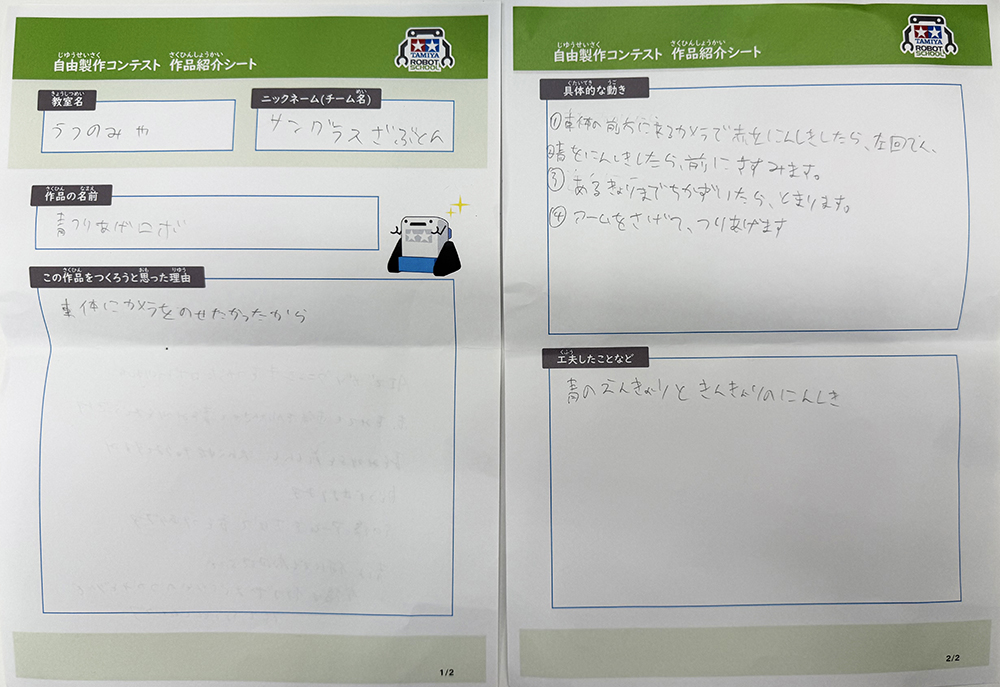 じゆうせいさく さくひんしょうかい
自由製作コンテスト 作品紹介シート
TAMIYA
ROBOT
SCHOOL
きょうしつめい
教室名
うつのみや
めい
ニックネーム(チーム名)
サングラスざぶとん
さくひん なまえ
作品の名前
青つりあげロボ
さくひん おも りゆう
この作品をつくろうと思った理由
車体にカメラをのせたかったから
1/2
じゆうせいさく さくひんしょうかい
自由製作コンテスト 作品紹介シート
TAMIYA
ROBOT
SCHOOL
ぐたいてき うご
具体的な動き
①車体の前方にあるカメラで赤をにんしきしたら、左回てん、
青をにんしきしたら、前にすすみます。
③あるきょりまでちかずいたら、とまります。
④アームをさげて、つりあげます
くふう
工夫したことなど
青のえんきょりときんきょりのにんしき
2/2